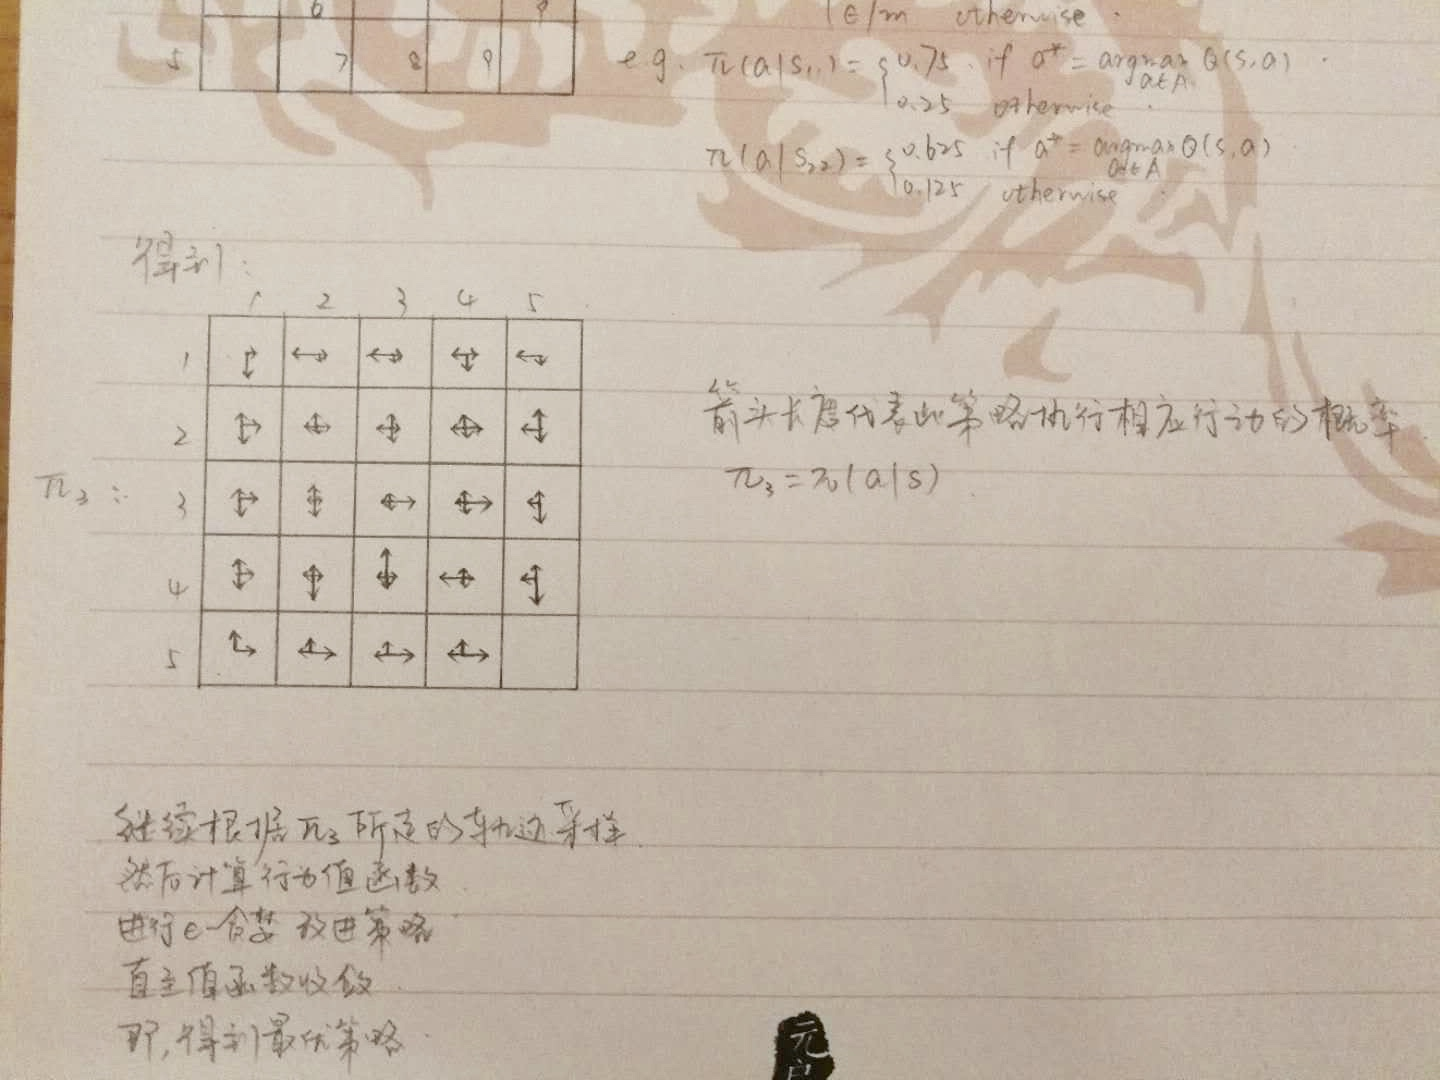 6 9
ϵ/m otherwise.
5 7 8 9
e.g. π(a|s₁,₁) = { 0.75 . if a* = argmax Q(s,a) .
a∈A
0.25 otherwise .
π(a|s₂₂) = { 0.625 if a* = argmax Q(s,a) .
a∈A
0.125 otherwise .
得到:
1 2 3 4 5
1
2
箭头长度代表此策略执行相应行动的概率.
π₃ :
3
π₃ = π(a|s) .
4
5
继续根据π₃所走的轨迹采样.
然后计算行为值函数.
进行ϵ-贪婪改进策略.
直至值函数收敛.
即,得到最优策略.
元